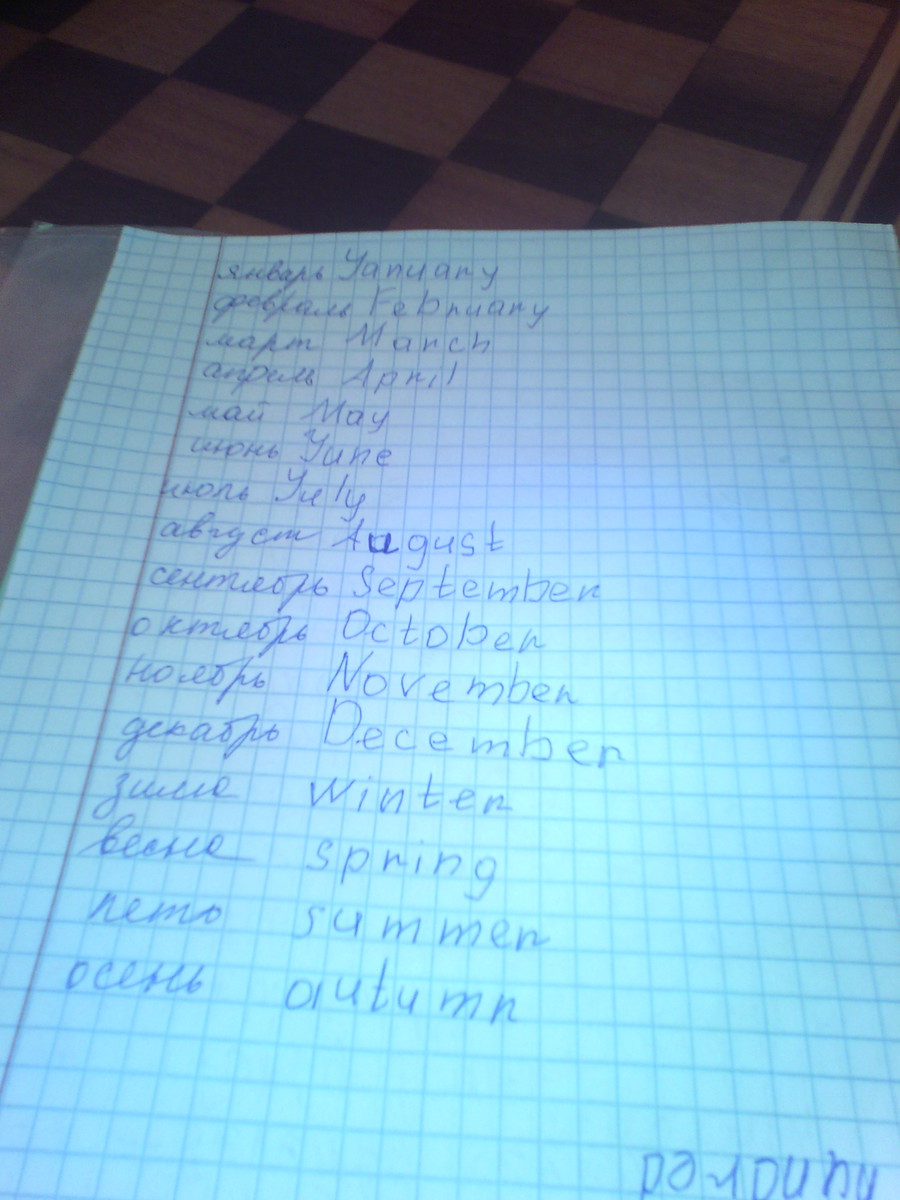 январь Yanuary
февраль February
март March
апрель April
май May
июнь Yune
июль Yuly
август August
сентябрь September
октябрь October
ноябрь November
декабрь December
зима winter
весна spring
лето summer
осень autumn